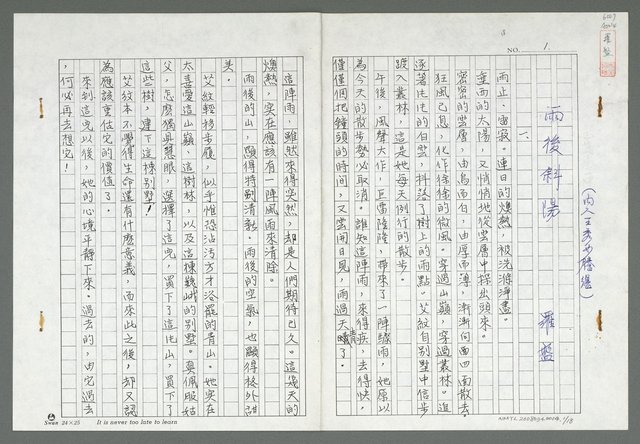 NO. 1.
雨後斜陽
羅盤
一、
雨止,雷寂。連日的燠熱,被洗滌淨盡。
重西的太陽,又悄悄地從雲層中探出頭來。
密密的雲層,由烏而白,由厚而薄,漸漸向四面散去。
狂風已息,化作徐徐的微風。穿過山巔,穿過叢林。追
逐著片片的白雲,抖落了樹上的雨點。艾紋自別墅中信步
踱入叢林,這是她每天例行的散步。
午後,風聲大作,巨雷隆隆,帶來了一陣驟雨,她原以
為今天的散步勢必取消。誰知這陣雨,來得疾,去得快,
僅僅個把鐘頭的時間,又雲開日見,雨過天晴了。
這陣雨,雖然來得突然,却是人們期待已久。這幾天的
燠熱,實在應該有一陣風雨來清除。
雨後的山,顯得特別清新。雨後的空氣,也顯得格外甜
美。
艾紋輕移步履,似乎惟恐沾污方才浴罷的青山。她實在
太喜愛這山巔、這樹林,以及這棟別墅。莫佩服姑
父,怎麼獨具慧眼,選擇了這兒,買下了這片山,買下了
這些樹,建下這棟別墅!
艾紋本不覺得生命還有什麼意義,而來此之後,却又認
為應該重估它的價值了。
來到這兒以後,她的心境平靜下來。過去的,由它過去
,何必再去想它!
Swan 24×25 It is never too late to learn